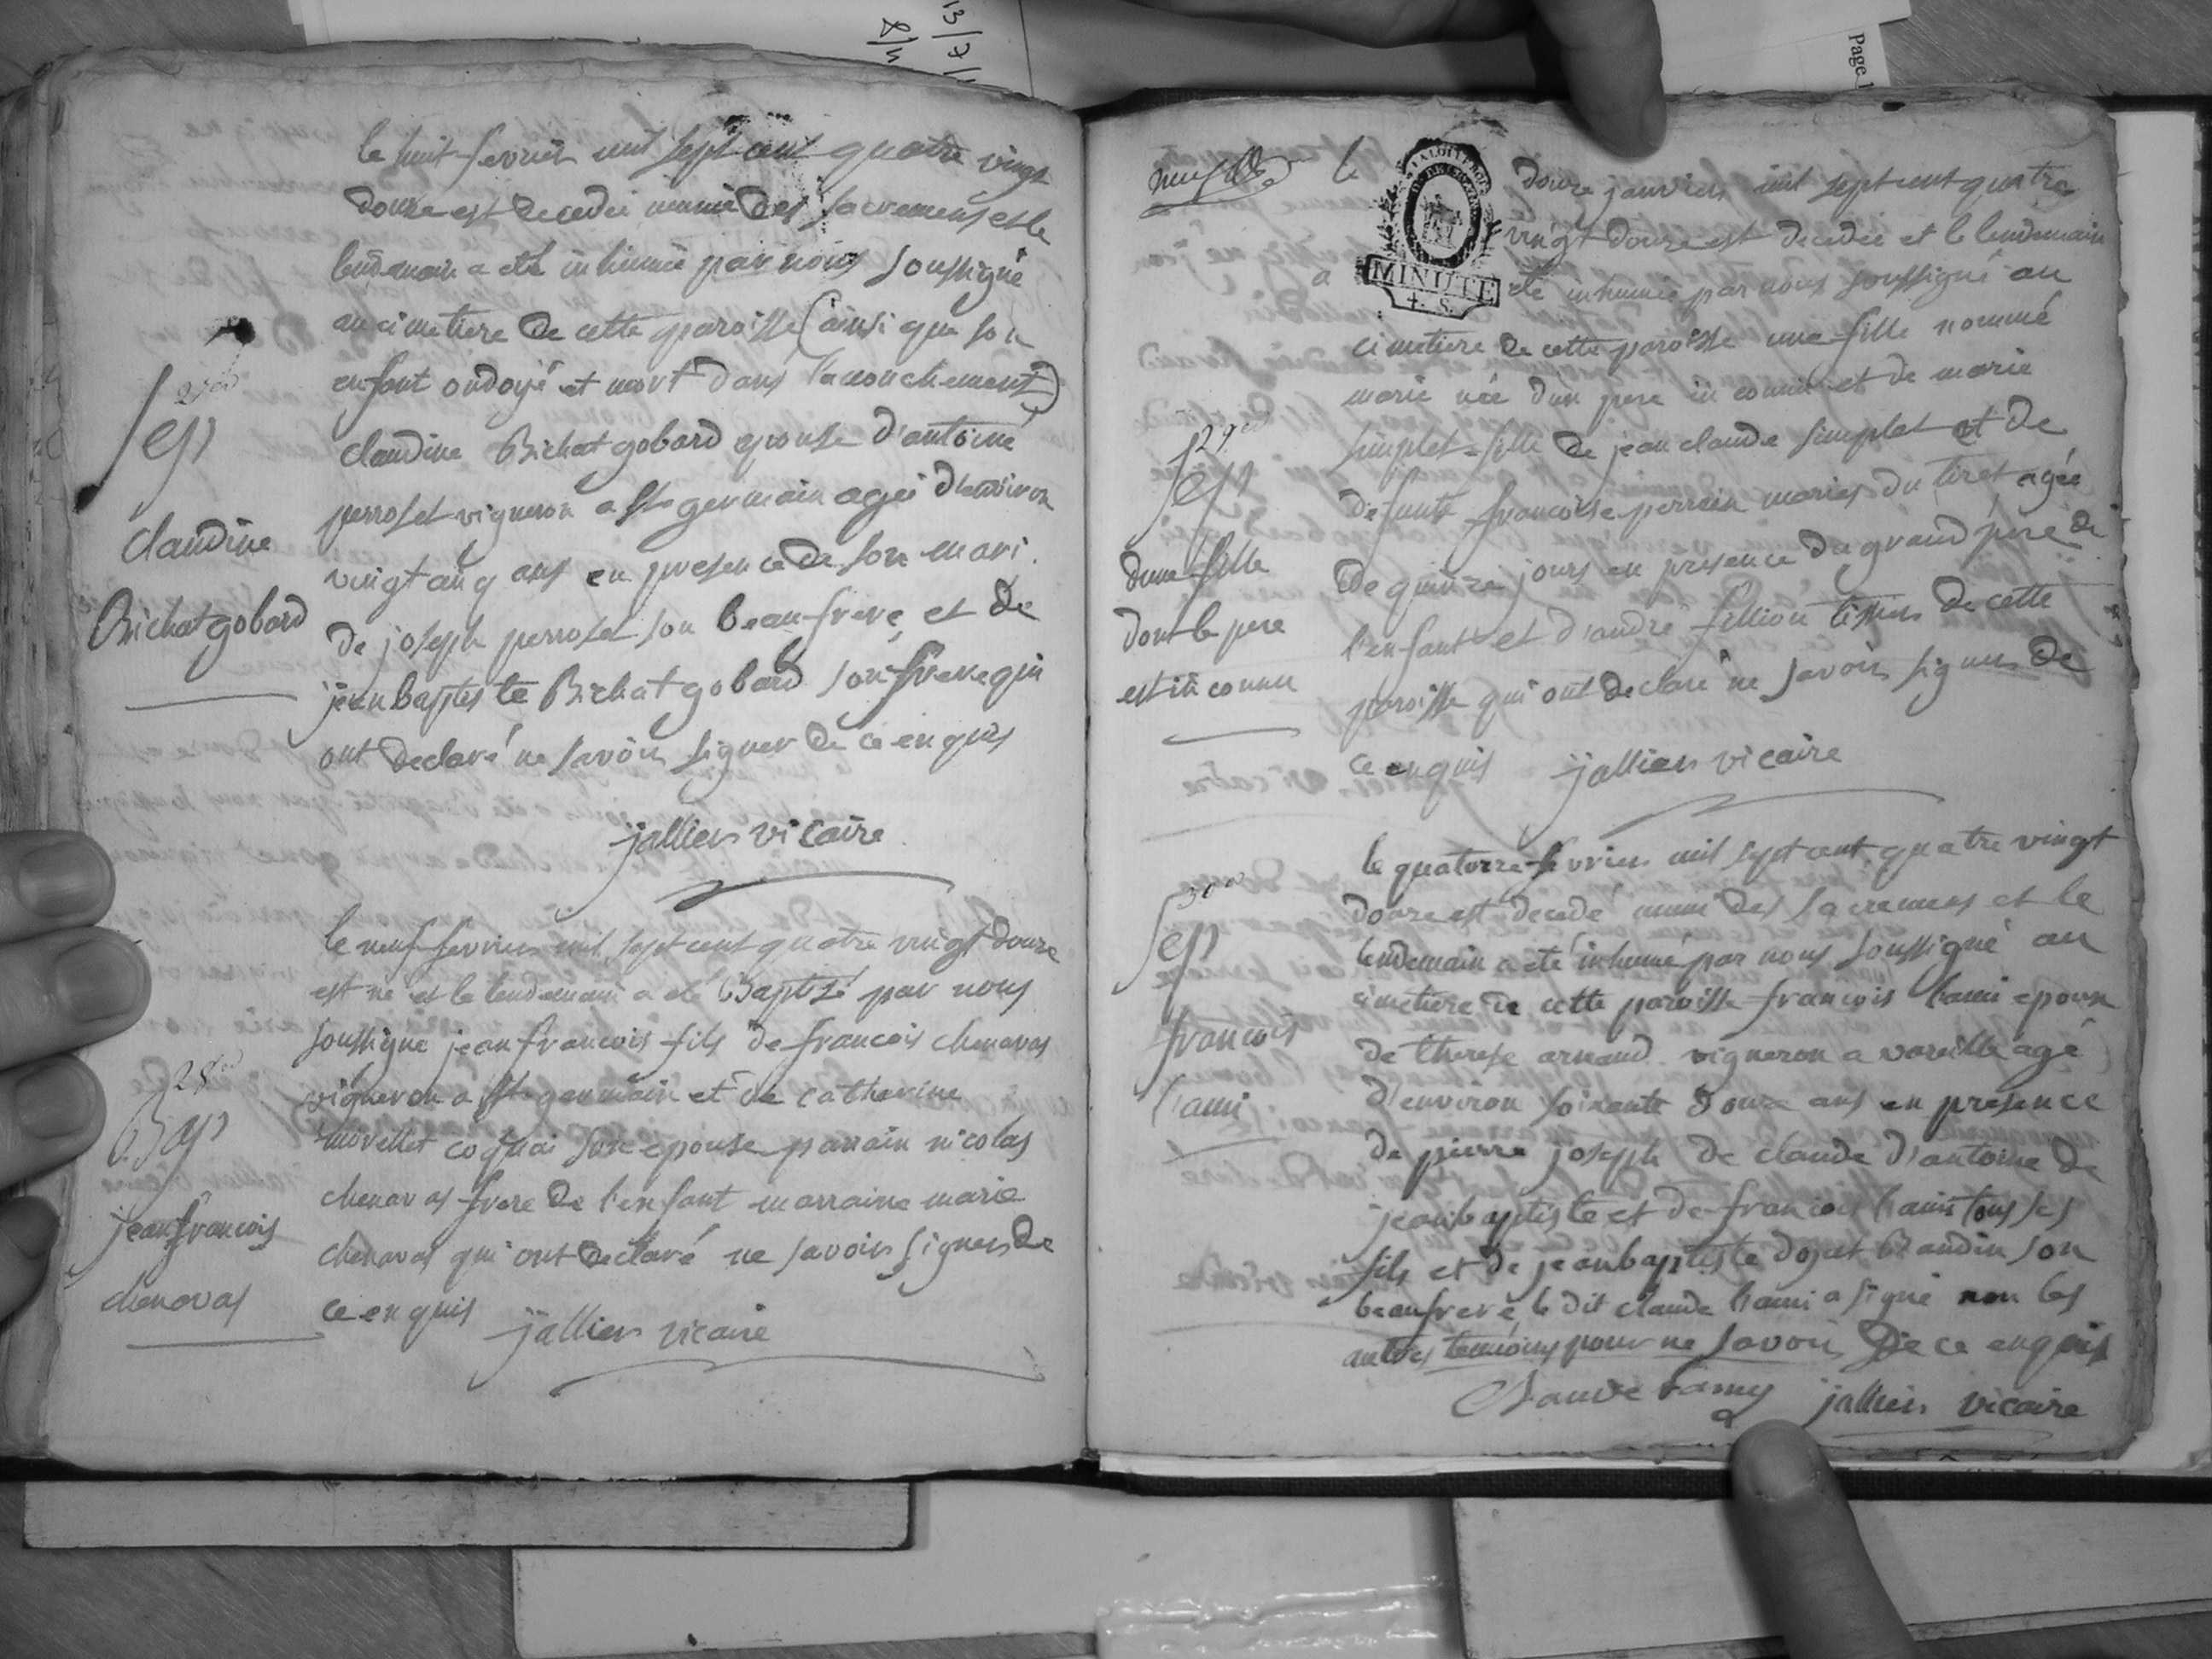 13/7/
Page 1
le huit fevrier mil sept cent quatre vingt
douze est decedée munie des sacremens et le
lendemain a eté inhumée par nous soussigné
au cimetiere de cette paroisse (ainsi que son
enfant ondoyé et mort dans l'acouchement)
claudine Bichat gobard epouse d'antoine
perroset vigneron a st germain agée d'environ
vingt cinq ans en presence de son mari
de joseph perroset son beaufrere et de
jean baptiste Bichat gobard son frere qui
ont declaré ne savoir signer de ce enquis
jallier vicaire
27
Sep
claudine
Bichat gobard
le neuf fevrier mil sept cent quatre vingt douze
est né et le lendemain a eté Baptisé par nous
soussigné jean francois fils de francois chenavas
vigneron a st germain et de catherine
morellet coquai son epouse parrain nicolas
chenavas frere de l'enfant marraine marie
chenavas qui ont declaré ne savoir signer de
ce enquis jallier vicaire
28
Bap
jean francois
chenavas
le douze janvier mil sept cent quatre
vingt douze est decedée et le lendemain
a eté inhumée par nous soussigné au
cimetiere de cette paroisse une fille nommé
marie née d'un pere inconnu et de marie
simplet fille de jean claude simplet et de
defunte francoise perrein mariés du tiret agée
de quinze jours en presence du grand pere de
l'enfant et d'andré fillion temoins de cette
paroisse qui ont declaré ne savoir signer de
ce enquis jallier vicaire
MINUTE
4. S.
29
Sep
d'une fille
dont le pere
est inconnu
le quatorze fevrier mil sept cent quatre vingt
douze est decedé muni des sacremens et le
lendemain a eté inhumé par nous soussigné au
cimetiere de cette paroisse francois lami epoux
de therese arnaud vigneron a vareille agé
d'environ soixante douze ans en presence
de pierre joseph de claude d'antoine de
jean baptiste et de francois lami tous ses
fils et de jean baptiste Baudin son
beaufrere le dit claude lami a signé non les
autres temoins pour ne savoir de ce enquis
Claude Lamy jallier vicaire
30
Sep
francois
lami